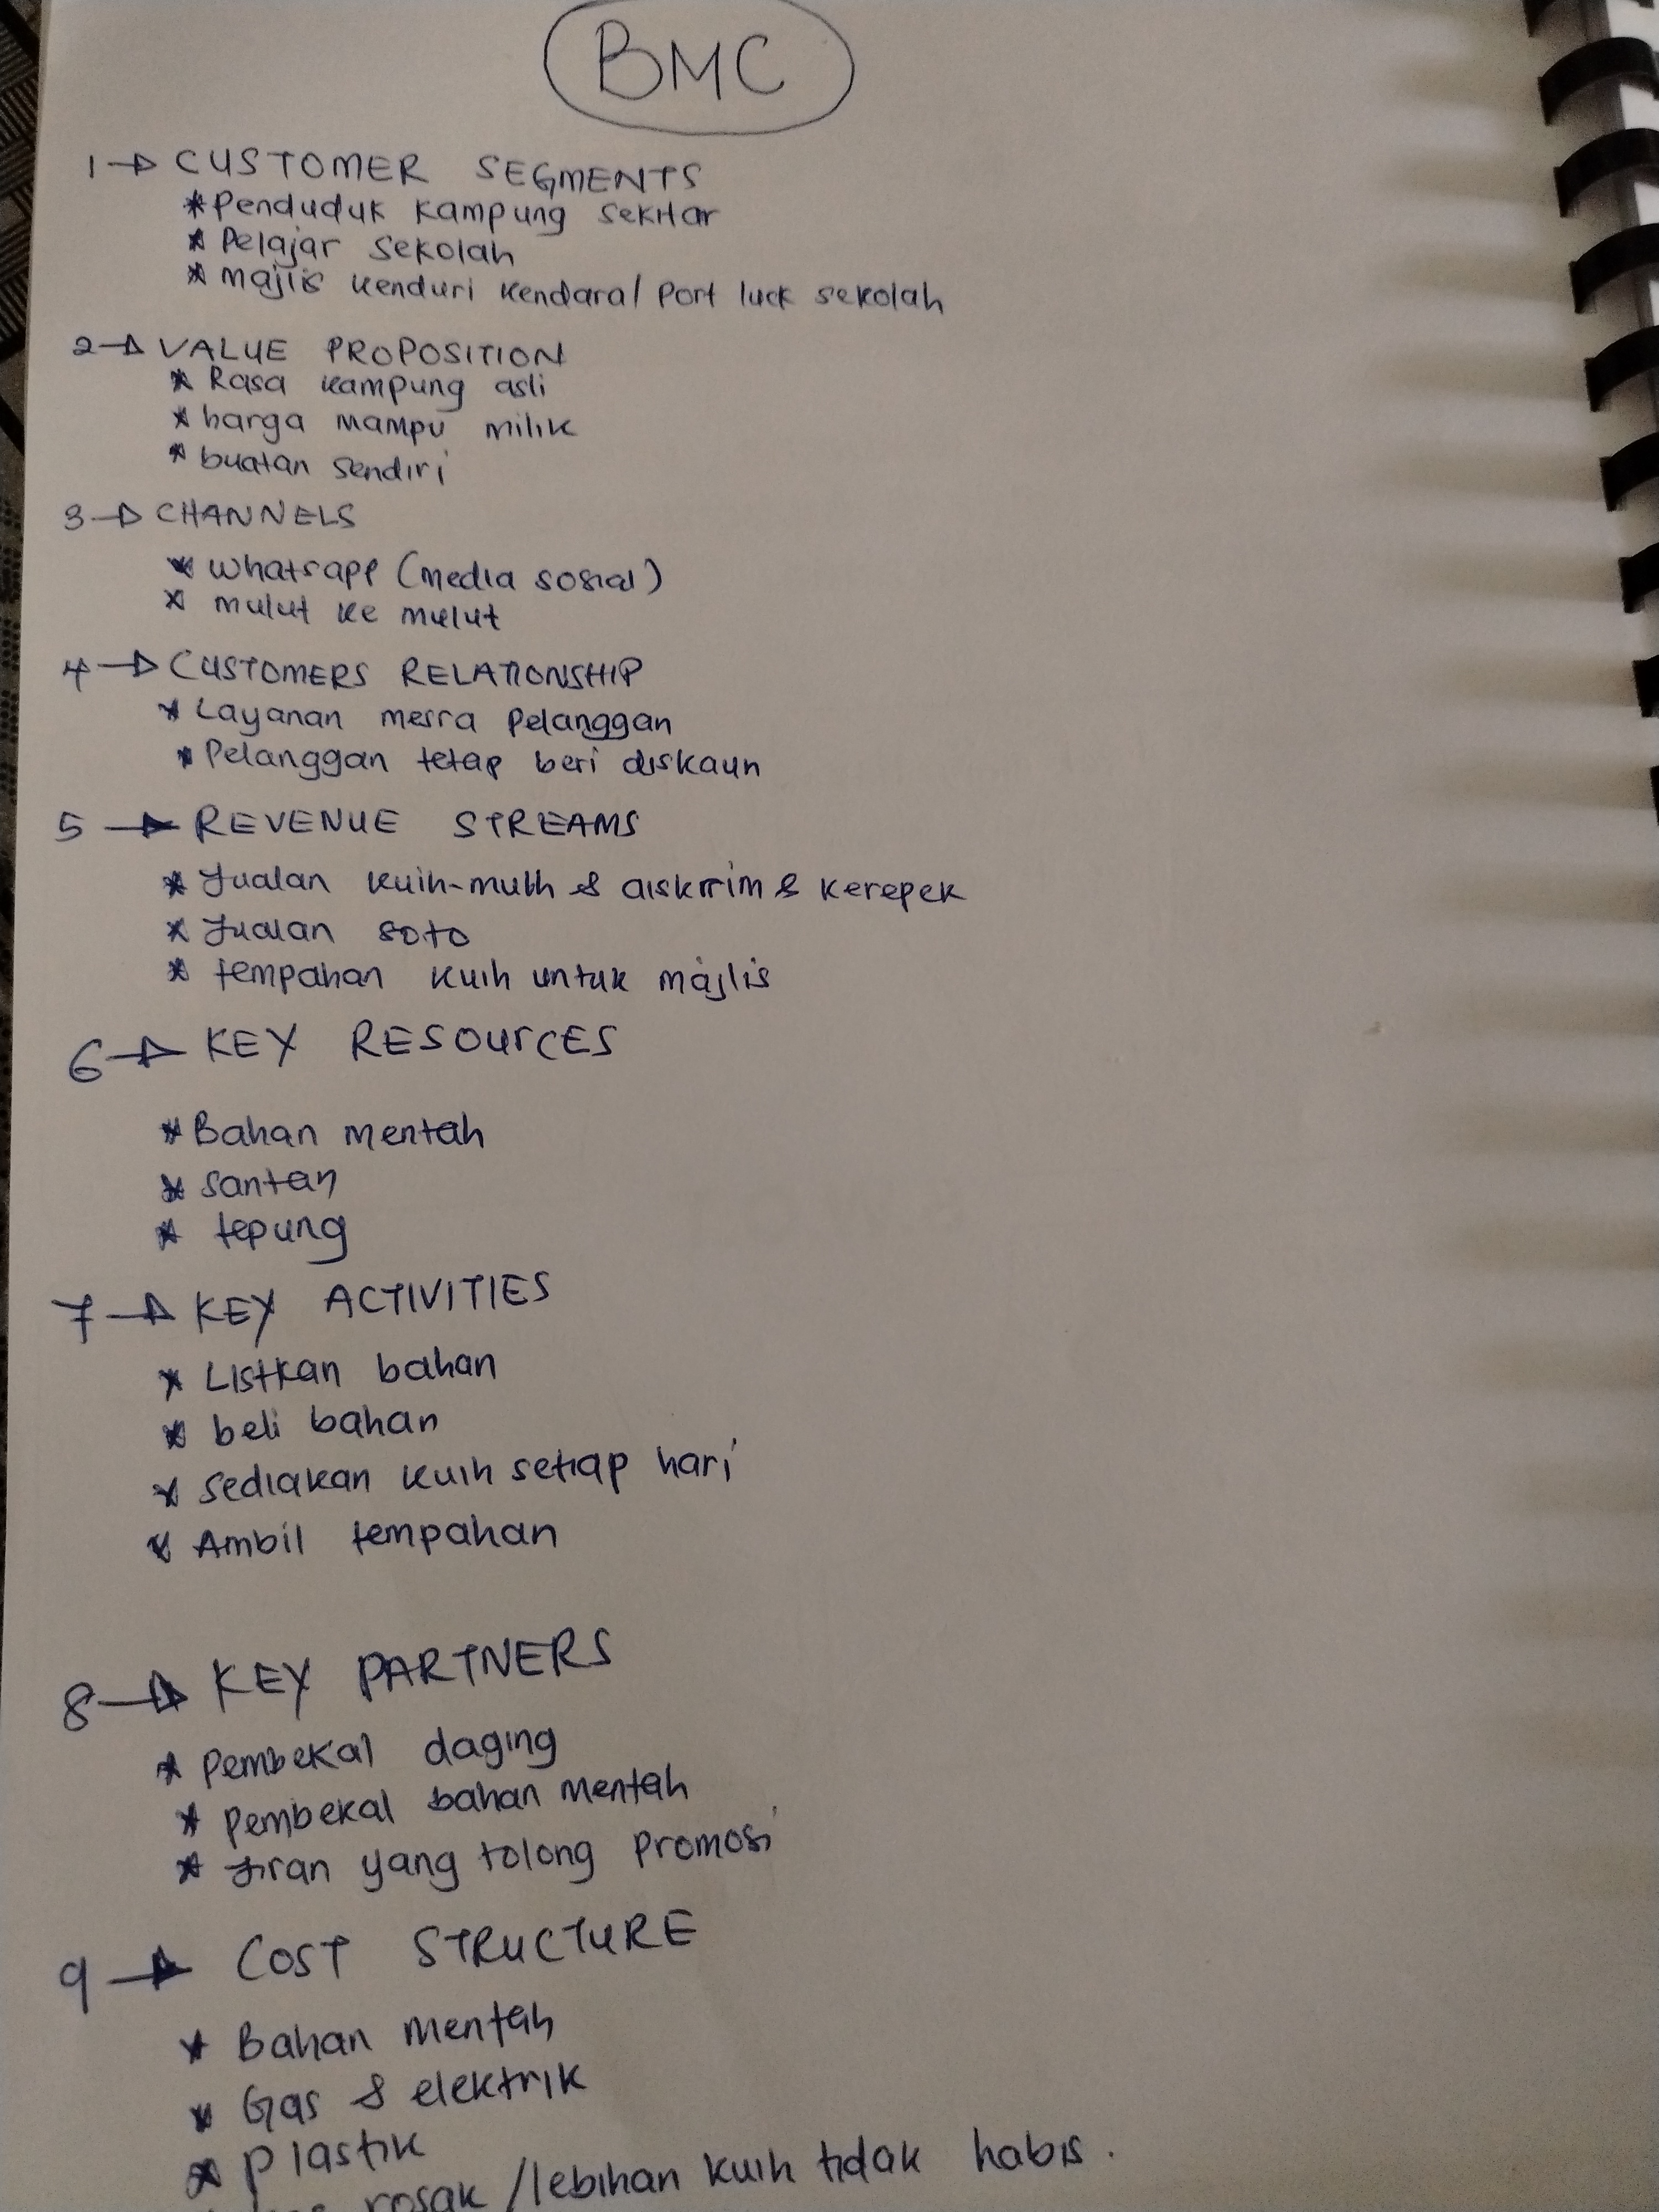 BMC
1 → CUSTOMER SEGMENTS
* Penduduk kampung sekitar
* Pelajar sekolah
* majlis kenduri kendara/ Port luck sekolah
2 → VALUE PROPOSITION
* Rasa kampung asli
* harga mampu milik
* buatan sendiri
3 → CHANNELS
* Whatsapp (media sosial)
* mulut ke mulut
4 → CUSTOMERS RELATIONSHIP
* Layanan mesra pelanggan
* Pelanggan tetap beri diskaun
5 → REVENUE STREAMS
* Jualan kuih-muih & aiskrim & kerepek
* Jualan soto
* tempahan kuih untuk majlis
6 → KEY RESOURCES
* Bahan mentah
* santan
* tepung
7 → KEY ACTIVITIES
* Listkan bahan
* beli bahan
* sediakan kuih setiap hari
* Ambil tempahan
8 → KEY PARTNERS
* Pembekal daging
* Pembekal bahan mentah
* Jiran yang tolong promosi
9 → COST STRUCTURE
* Bahan mentah
* Gas & elektrik
* Plastik
rosak /lebihan kuih tidak habis.